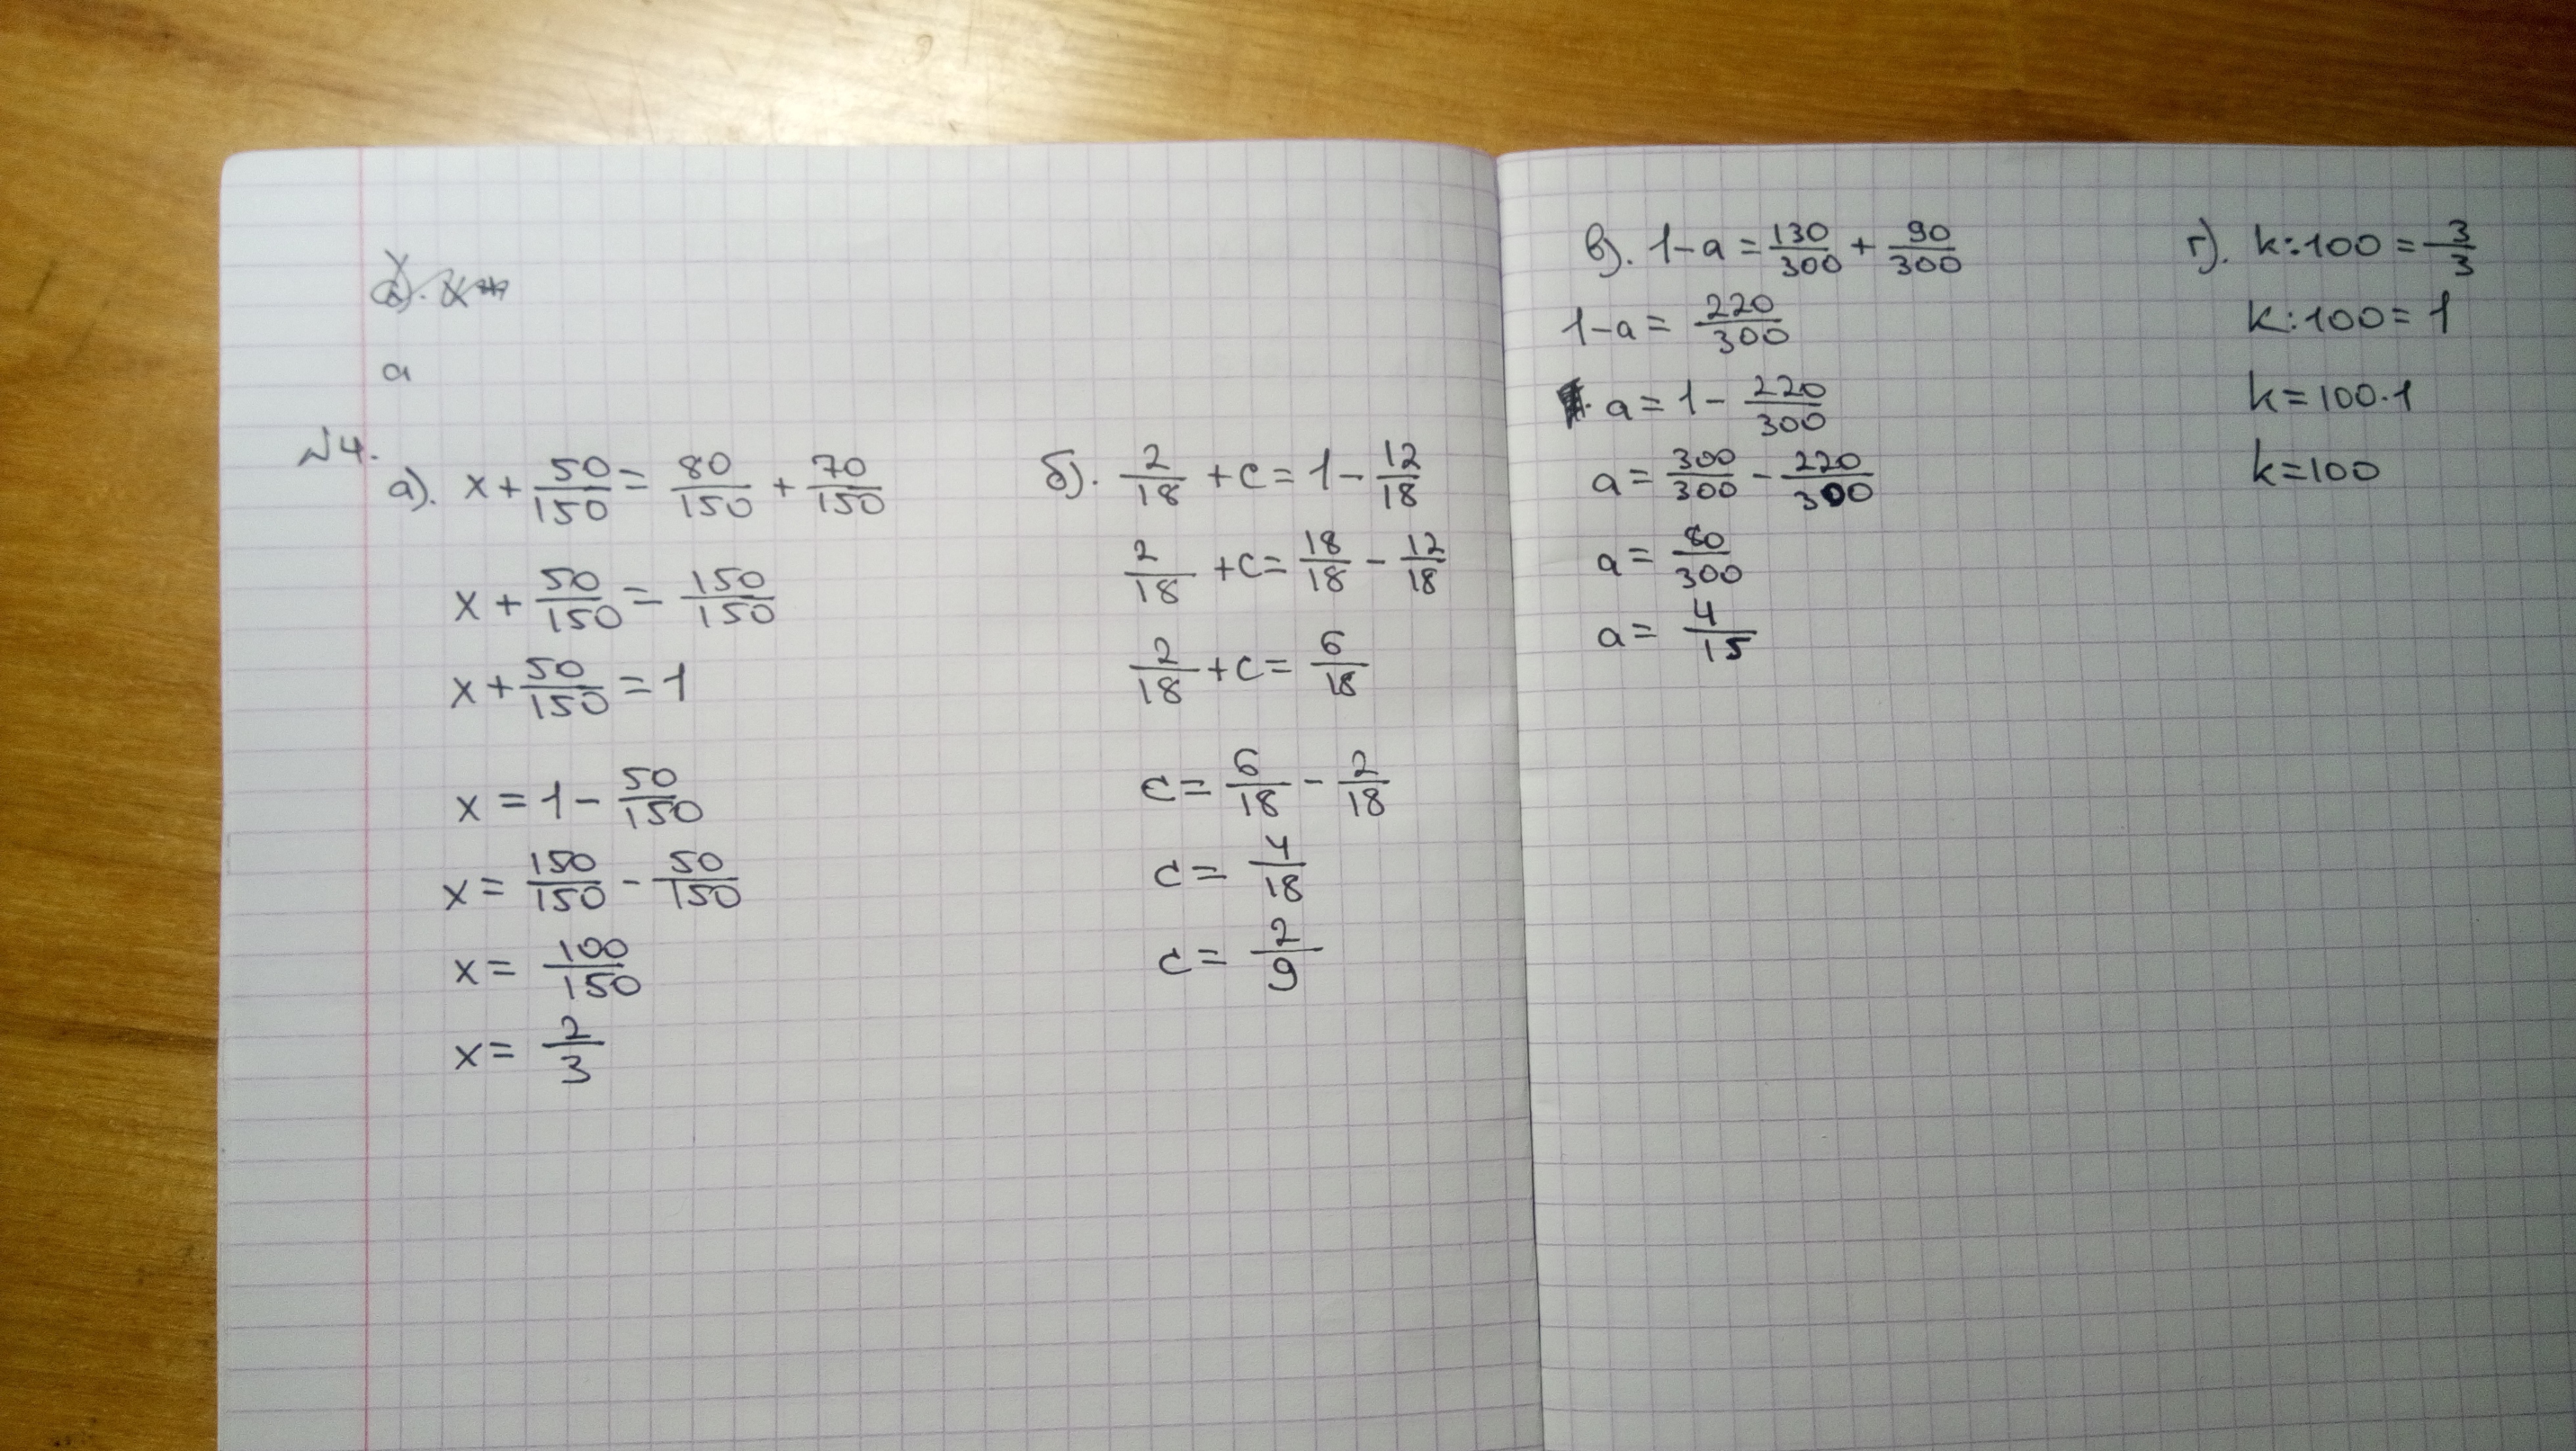 а
№4.
а). x + 50/150 = 80/150 + 70/150
x + 50/150 = 150/150
x + 50/150 = 1
x = 1 - 50/150
x = 150/150 - 50/150
x = 100/150
x = 2/3
б). 2/18 + c = 1 - 12/18
2/18 + c = 18/18 - 12/18
2/18 + c = 6/18
c = 6/18 - 2/18
c = 4/18
c = 2/9
в). 1 - a = 130/300 + 90/300
1 - a = 220/300
a = 1 - 220/300
a = 300/300 - 220/300
a = 80/300
a = 4/15
г). k : 100 = 3/3
k : 100 = 1
k = 100 · 1
k = 100